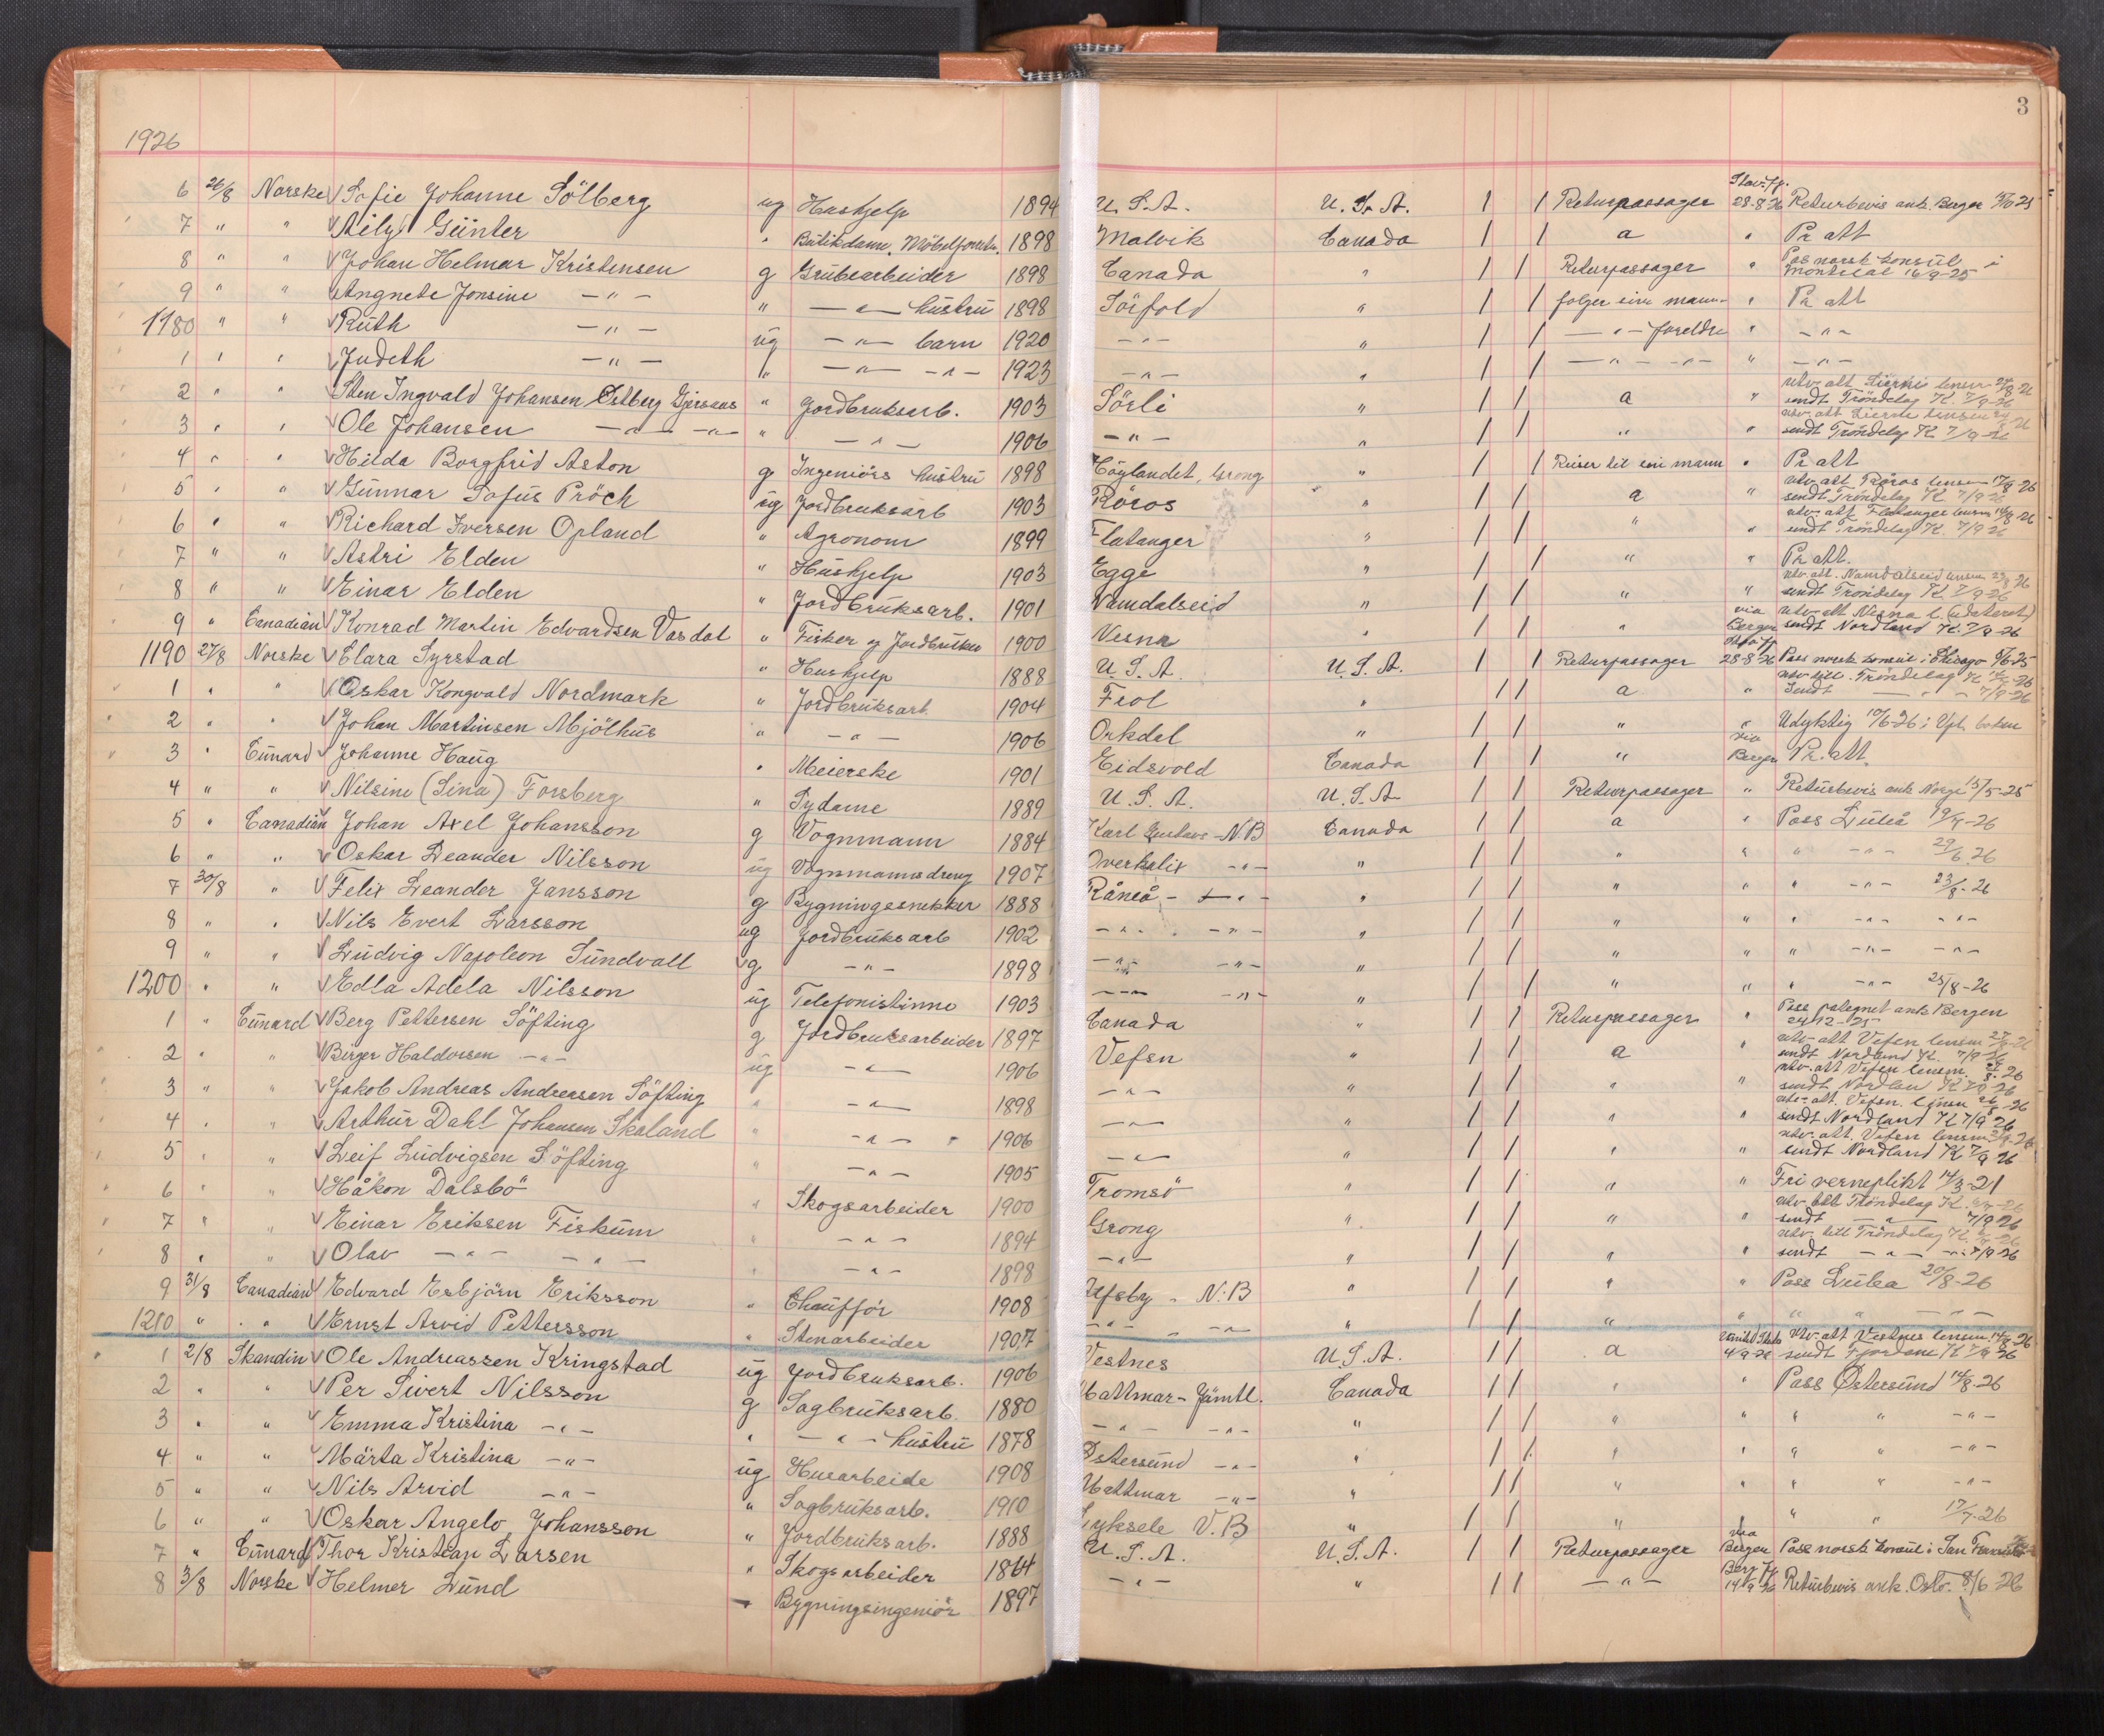 3
1926
6 26/8 Norske Sofie Johanne Sölberg ug Hushjelp 1894 U.S.A. U.S.A. 1 1 Returpassager Stav.fj. 28-8-26 Returbevis ank. Berger
7 " " Aily Günter " Butikdame, Möbelforretn. 1898 Malvik Canada 1 1 a " Pr att
8 " " Johan Helmar Kristensen g Grubearbeider 1898 Canada " 1 1 Returpassager " Pas norsk konsul i Montreal 16/9-25
9 " " Angnete Jonsine - " - " - " - hustru 1898 Sörfold " 1 1 følger sin mann " Pr att
1180 " " Ruth - " - ug - " - barn 1920 - " - " 1 1 - " - foreldre " - " -
1 " " Judeth - " - " - " - - " - 1923 - " - " 1 1 - " - - " - " - " -
2 " " Sten Ingvald Johansen Östberg Gjersaas " Jordbruksarb. 1903 Sörli " 1 1 a " utv. att lensm 8-26 sendt Tröndelag K. 7/9-26
3 " " Ole Johansen - " - - " - " - " - 1906 - " - " 1 1 " " utv. att lensm sendt Tröndelag K 7/9-26
4 " " Hilda Borgfrid Aston g Ingeniörs hustru 1898 Höylandet, Grong " 1 1 Reiser til sin mann " Pr att
5 " " Gunnar Sofus Pröch ug Jordbruksarb 1903 Röros " 1 1 a " utv. att Röros lensm 17/8-26 sendt Tröndelag K 7/9-26
6 " " Richard Iversen Opland " Agronom 1899 Flatanger " 1 1 " " utv. att Flatanger lensm 14/8-26 sendt Tröndelag K. 7/9-26
7 " " Astri Elden " Hushjelp 1903 Egge " 1 1 " " Pr att.
8 " " Einar Elden " Jordbruksarb. 1901 Namdalseid " 1 1 " " utv. att. Namdalseid lensm 8-26 sendt Tröndelag K 7/9-26
9 " Canadian Konrad Martin Edvardsen Vasdal " Fisker og Jordbruker 1900 Nesna " 1 1 " via Bergen utv. att Nesna l. (udatert) sendt Nordland K. 7/9-26
1190 27/8 Norske Clara Syrstad " Hushjelp 1888 U.S.A. U.S.A. 1 1 Returpassager 28-8-26 Pass norsk konsul i Chicago 6/6-25
1 " " Oskar Kongvald Nordmark " Jordbruksarb. 1904 Frol " 1 1 a " utv till. Tröndelag K Sendt - " - 7/9-26
2 " " Johan Martinsen Mjölhus " - " - 1906 Orkdal " 1 1 " " Udyktig 10/6-26 i Vpl. boken
3 " Cunard Johanne Haug " Meierske 1901 Eidsvold Canada 1 1 " via Bergen Pr. att.
4 " " Nilsine (Sina) Forsberg " Sydame 1889 U.S.A. U.S.A. 1 1 Returpassager " Returbevis ank Norge 13/5-25
5 " Canadian Johan Axel Johansson g Vognmann 1884 Karl Gustavs - N.B Canada 1 1 a " Pass Luleå 19/7-26
6 " " Oskar Leander Nilsson ug Vognmannsdreng 1907 Överkalix - " - " 1 1 " " " - " - 29/6 26
7 30/8 " Felix Leander Jansson g Bygningssnekker 1888 Råneå - " - " 1 1 " " " - " - 23/8-26
8 " " Nils Evert Larsson ug Jordbruksarb 1902 - " - - " - " 1 1 " " " - " - - " -
9 " " Ludvig Napoleon Sundvall ug - " - 1898 - " - - " - " 1 1 " " " - " - - " -
1200 " " Edla Adela Nilsson ug Telefonistinne 1903 - " - - " - " 1 1 " " " - " - 25/8-26
1 " Cunard Berg Pettersen Söfting g Jordbruksarbeider 1897 Canada " 1 1 Returpassager " Pass palegnet ank Bergen 24-12-25
2 " " Birger Haldorsen - " - ug - " - 1906 Vefsn " 1 1 a " utv. att Vefsn lensm sendt Nordland K. 7/9-26
3 " " Jakob Andreas Andreasen Söfting " - " - 1898 - " - " 1 1 " " utv. att Vefsn lensm. 8-26 sendt K. 7/9-26
4 " " Arthur Dahl Johansen Skaland " - " - 1906 - " - " 1 1 " " utv. att. Vefsn. lensm 26/8-26 sendt Nordland K 7/9 26
5 " " Leif Ludvigsen Söfting " - " - 1905 - " - " 1 1 " " utv. att. Vefsn lensm sendt Nordland K 7/9 26
6 " " Håkon Dalsbö " Skogsarbeider 1900 Tromsö " 1 1 " " Fri verneplikt 14/3-21
7 " " Einar Eriksen Fiskum " - " - 1894 Grong " 1 1 " " utv. till Tröndelag K. sendt - " - 7/9 26
8 " " Olav - " - - " - " - " - 1898 - " - " 1 1 " " utv. till Tröndelag K. sendt - " - 7/9-26
9 31/8 Canadian Edvard Esbjörn Eriksson " Chaufför 1908 Älfsby - N.B " 1 1 " " Pass Lulea 20/8-26
1210 " " Ernst Arvid Pettersson " Stenarbeider 1907 - " - - " - " 1 1 " " " " - " -
1 2/8 Skandin Ole Andreassen Kringstad ug Jordbruksarb. 1906 Vestnes U.S.A. 1 1 a 4/9-26 utv. att Vestnes lensm 14/8-26 sendt Fjordane K 7/9 26
2 " " Per Sivert Nilsson g Sagbruksarb. 1880 Mattmar - Jämtl. Canada 1 1 " " Pass Östersund 14/8-26
3 " " Emma Kristina - " - " - " - hustru 1878 - " - - " - " 1 1 " " " " - " -
4 " " Märta Kristina - " - ug Husarbeide 1908 Östersund - " - " 1 1 " " " " - " -
5 " " Nils Arvid - " - " Sagbruksarb. 1910 Mattmar - " - " 1 1 " " " " - " -
6 " " Oskar Angelo Johansson " Jordbruksarb. 1888 Lyksele V.B " 1 1 " " " 17/7-26
7 " Cunard Thor Kristian Larsen " Skogsarbeider 1864 U.S.A. U.S.A. 1 1 Returpassager via Bergen Pass norsk konsul i San
8 3/8 Norske Helmer Lund - Bygningsingeniör 1897 - " - " 1 1 - " - Berg.fj. 14/9 26 Returbevis ank. Oslo. 8/6 26